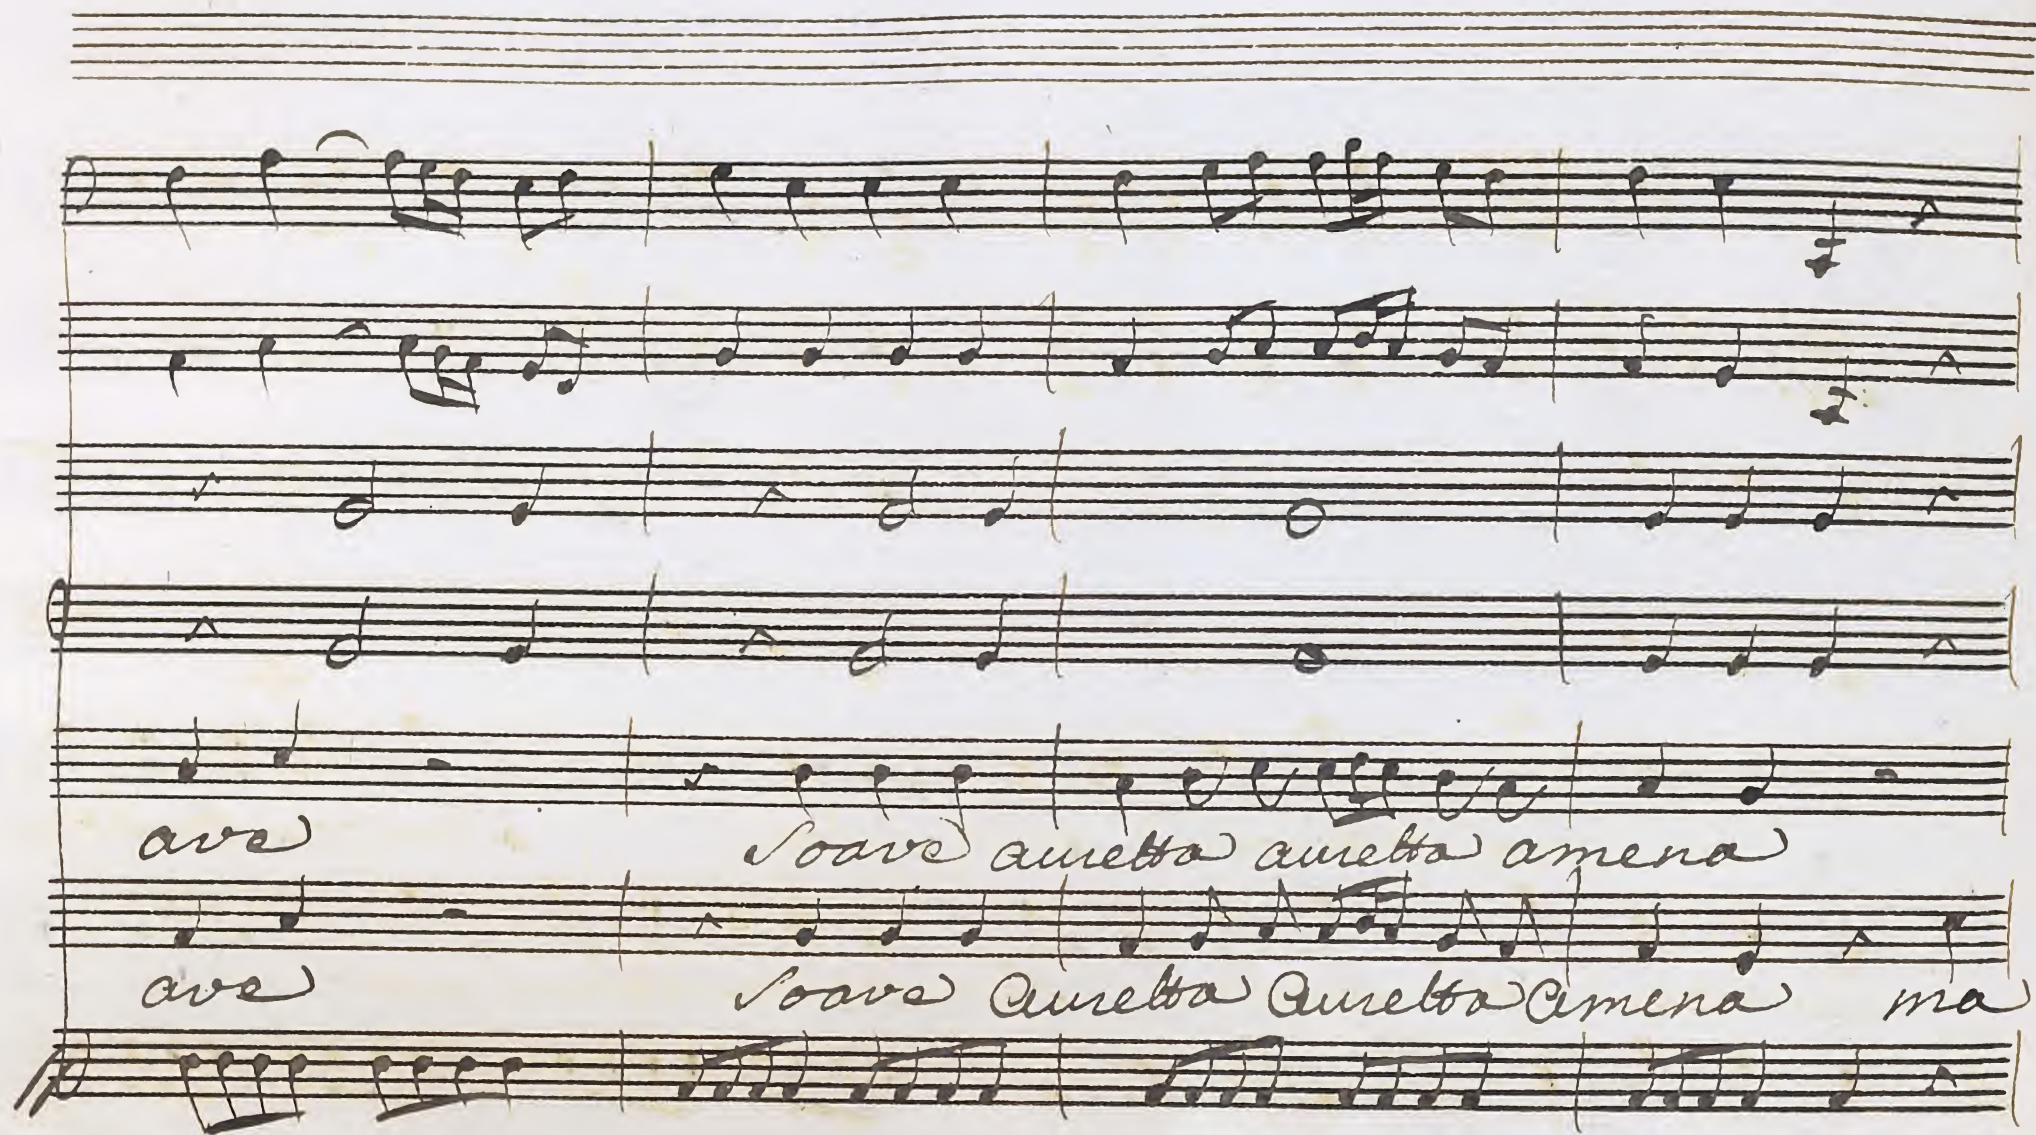 ave soave auretta auretta amena
ave soave auretta auretta amena ma